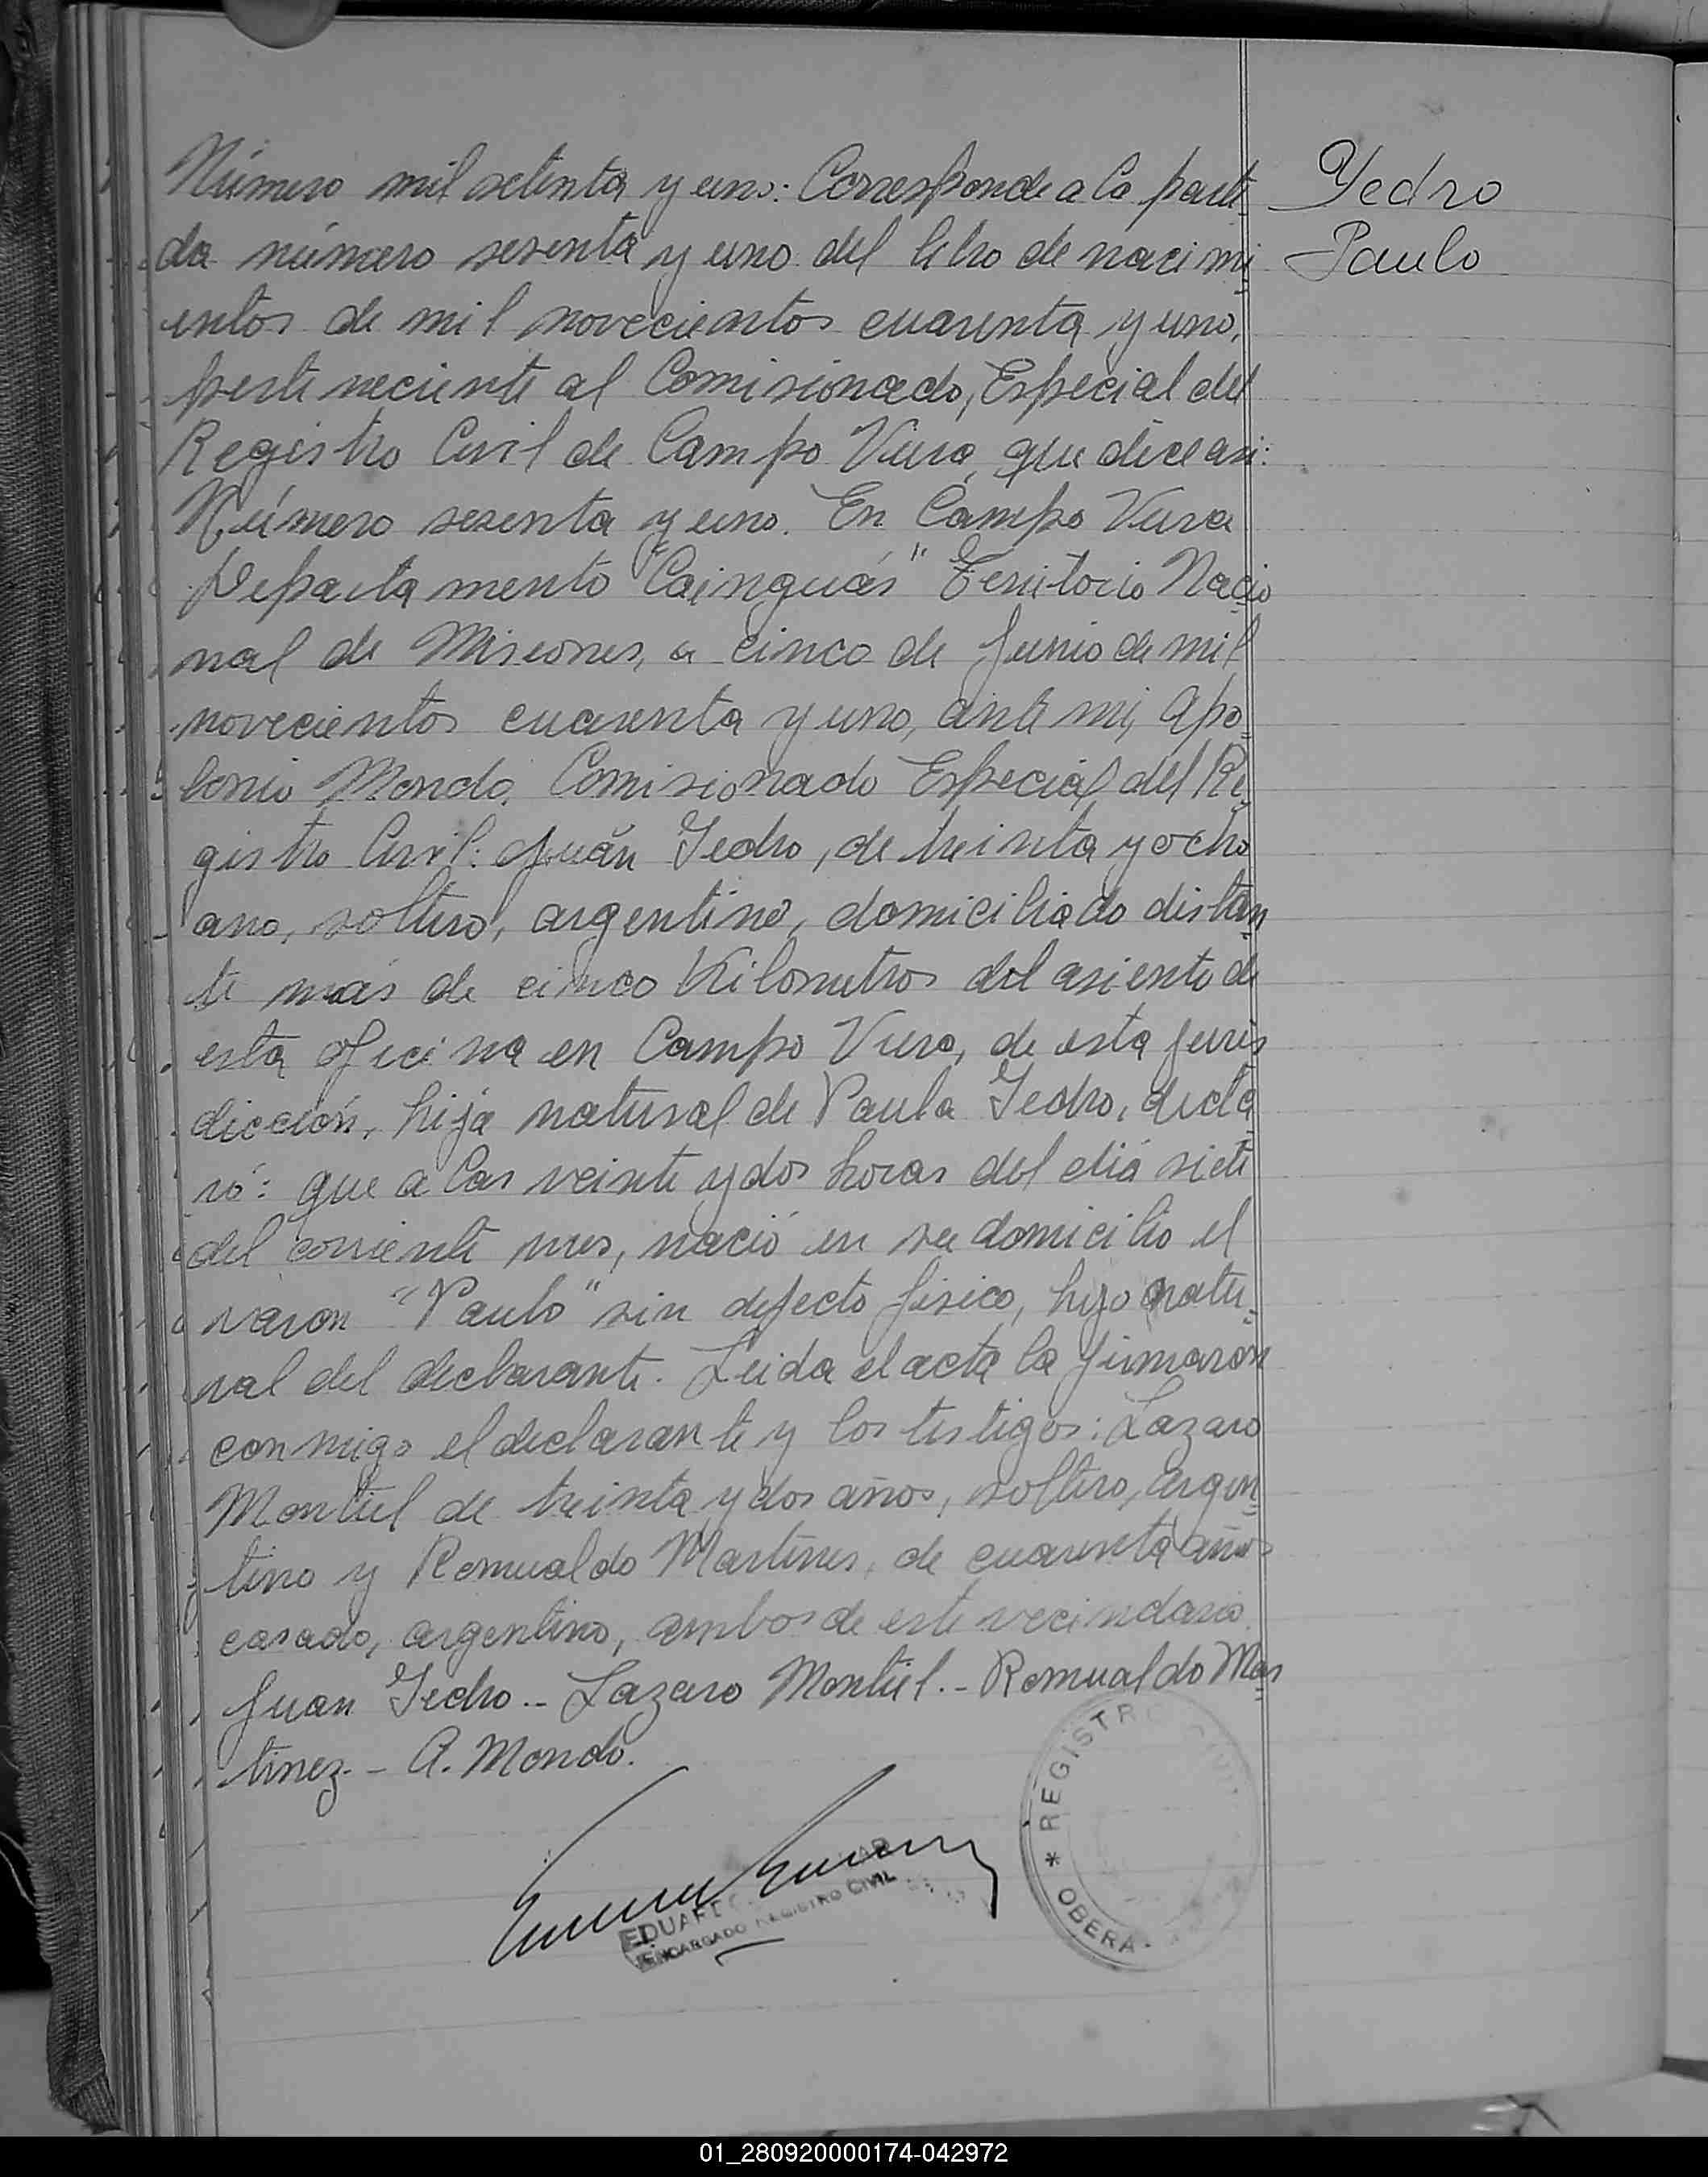 Número mil setenta y uno: Corresponde a la parti
da número sesenta y uno del libro de nacimi
entos de mil novecientos cuarenta y uno,
perteneciente al Comisionado, Especial del
Registro Civil de Campo Viera, que dice asi:
Número sesenta y uno. En Campo Viera
Departamento "Cainguás" Territorio Nacio
nal de Misiones, a cinco de Junio de mil
novecientos cuarenta y uno, ante mi, Apo
lonio Mondo, Comisionado Especial del Re
gistro Civil: Juán Yedro, de treinta y ocho
ano, soltero, argentino, domiciliado distan
te más de cinco Kilometros del asiento de
esta oficina en Campo Viera, de esta juris
dicción, hija natural de Paula Yedro, decla
ró: que a las veinte y dos horas del diá siete
del corriente mes, nació en su domicilio el
varon "Paulo" sin defecto fisico, hijo natu
ral del declarante. Leida el acta la firmaron
conmigo el declarante y los testigos: Lazaro
Montiel de treinta y dos años, soltero, argen
tino y Romualdo Martines, de cuarenta años
casado, argentino, ambos de este vecindario.
Juan Yedro.- Lazaro Montiel.- Romualdo Mar
tinez.- A. Mondo.
Yedro
Paulo
ENCARGADO REGISTRO CIVIL
* REGISTRO CIVIL
OBERA
01_280920000174-042972